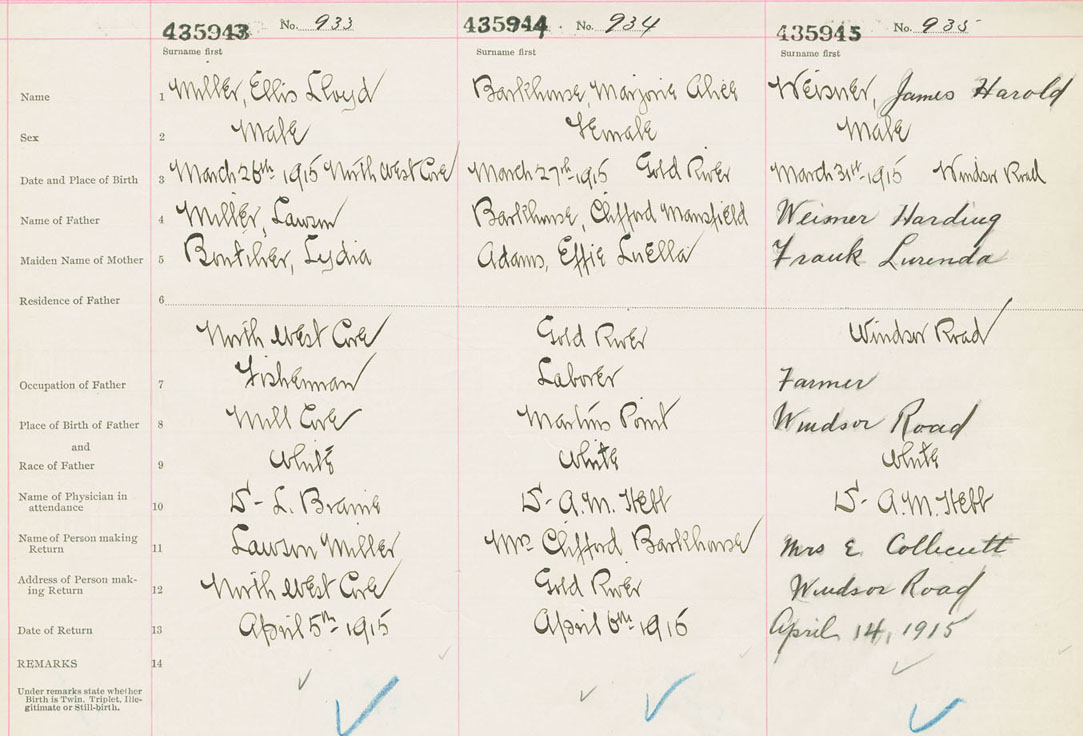 435943 No. 933 435944 No. 934 435945 No. 935
Surname first Surname first Surname first
Name 1 Miller, Ellis Lloyd Barkhouse, Marjorie Alice Weisner, James Harold
Sex 2 Male Female Male
Date and Place of Birth 3 March 26th 1915 North West Cove March 27th-1915 Gold River March 31st-1915 Windsor Road
Name of Father 4 Miller, Lawson Barkhouse, Clifford Mansfield Weisner Harding
Maiden Name of Mother 5 Boutilier, Lydia Adams, Effie Luella Frank Lurenda
Residence of Father 6
North West Cove Gold River Windsor Road
Occupation of Father 7 Fisherman Laborer Farmer
Place of Birth of Father 8 Mill Cove Martins Point Windsor Road
and
Race of Father 9 White White White
Name of Physician in
attendance 10 L. Braine A.M. Hebb A.M. Hebb
Name of Person making
Return 11 Lawson Miller Mrs Clifford Barkhouse Mrs E. Collicutt
Address of Person mak-
ing Return 12 North West Cove Gold River Windsor Road
Date of Return 13 April 5th-1915 April 6th 1915 April 14, 1915
REMARKS 14
Under remarks state whether
Birth is Twin, Triplet, Ille-
gitimate or Still-birth.